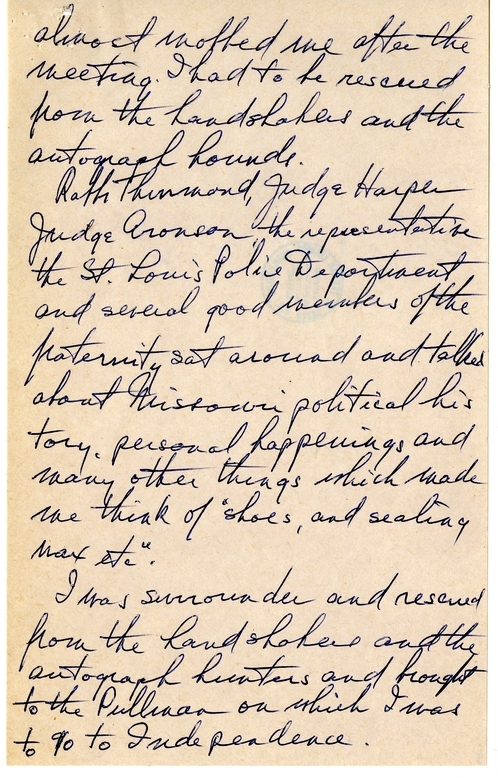 almost mobbed me after the
meeting. I had to be rescued
from the handshakers and the
autograph hounds.
Rabbi Thurmond, Judge Harper
Judge Aronson the representative
the St. Louis Police Department
and several good members of the
fraternity sat around and talked
about Missouri political his
tory, personal happenings and
many other things which made
me think of "shoes, and sealing
wax etc".
I was surrounder and rescued
from the handshakers and the
autograph hunters and brought
to the Pullman on which I was
to go to Independence.